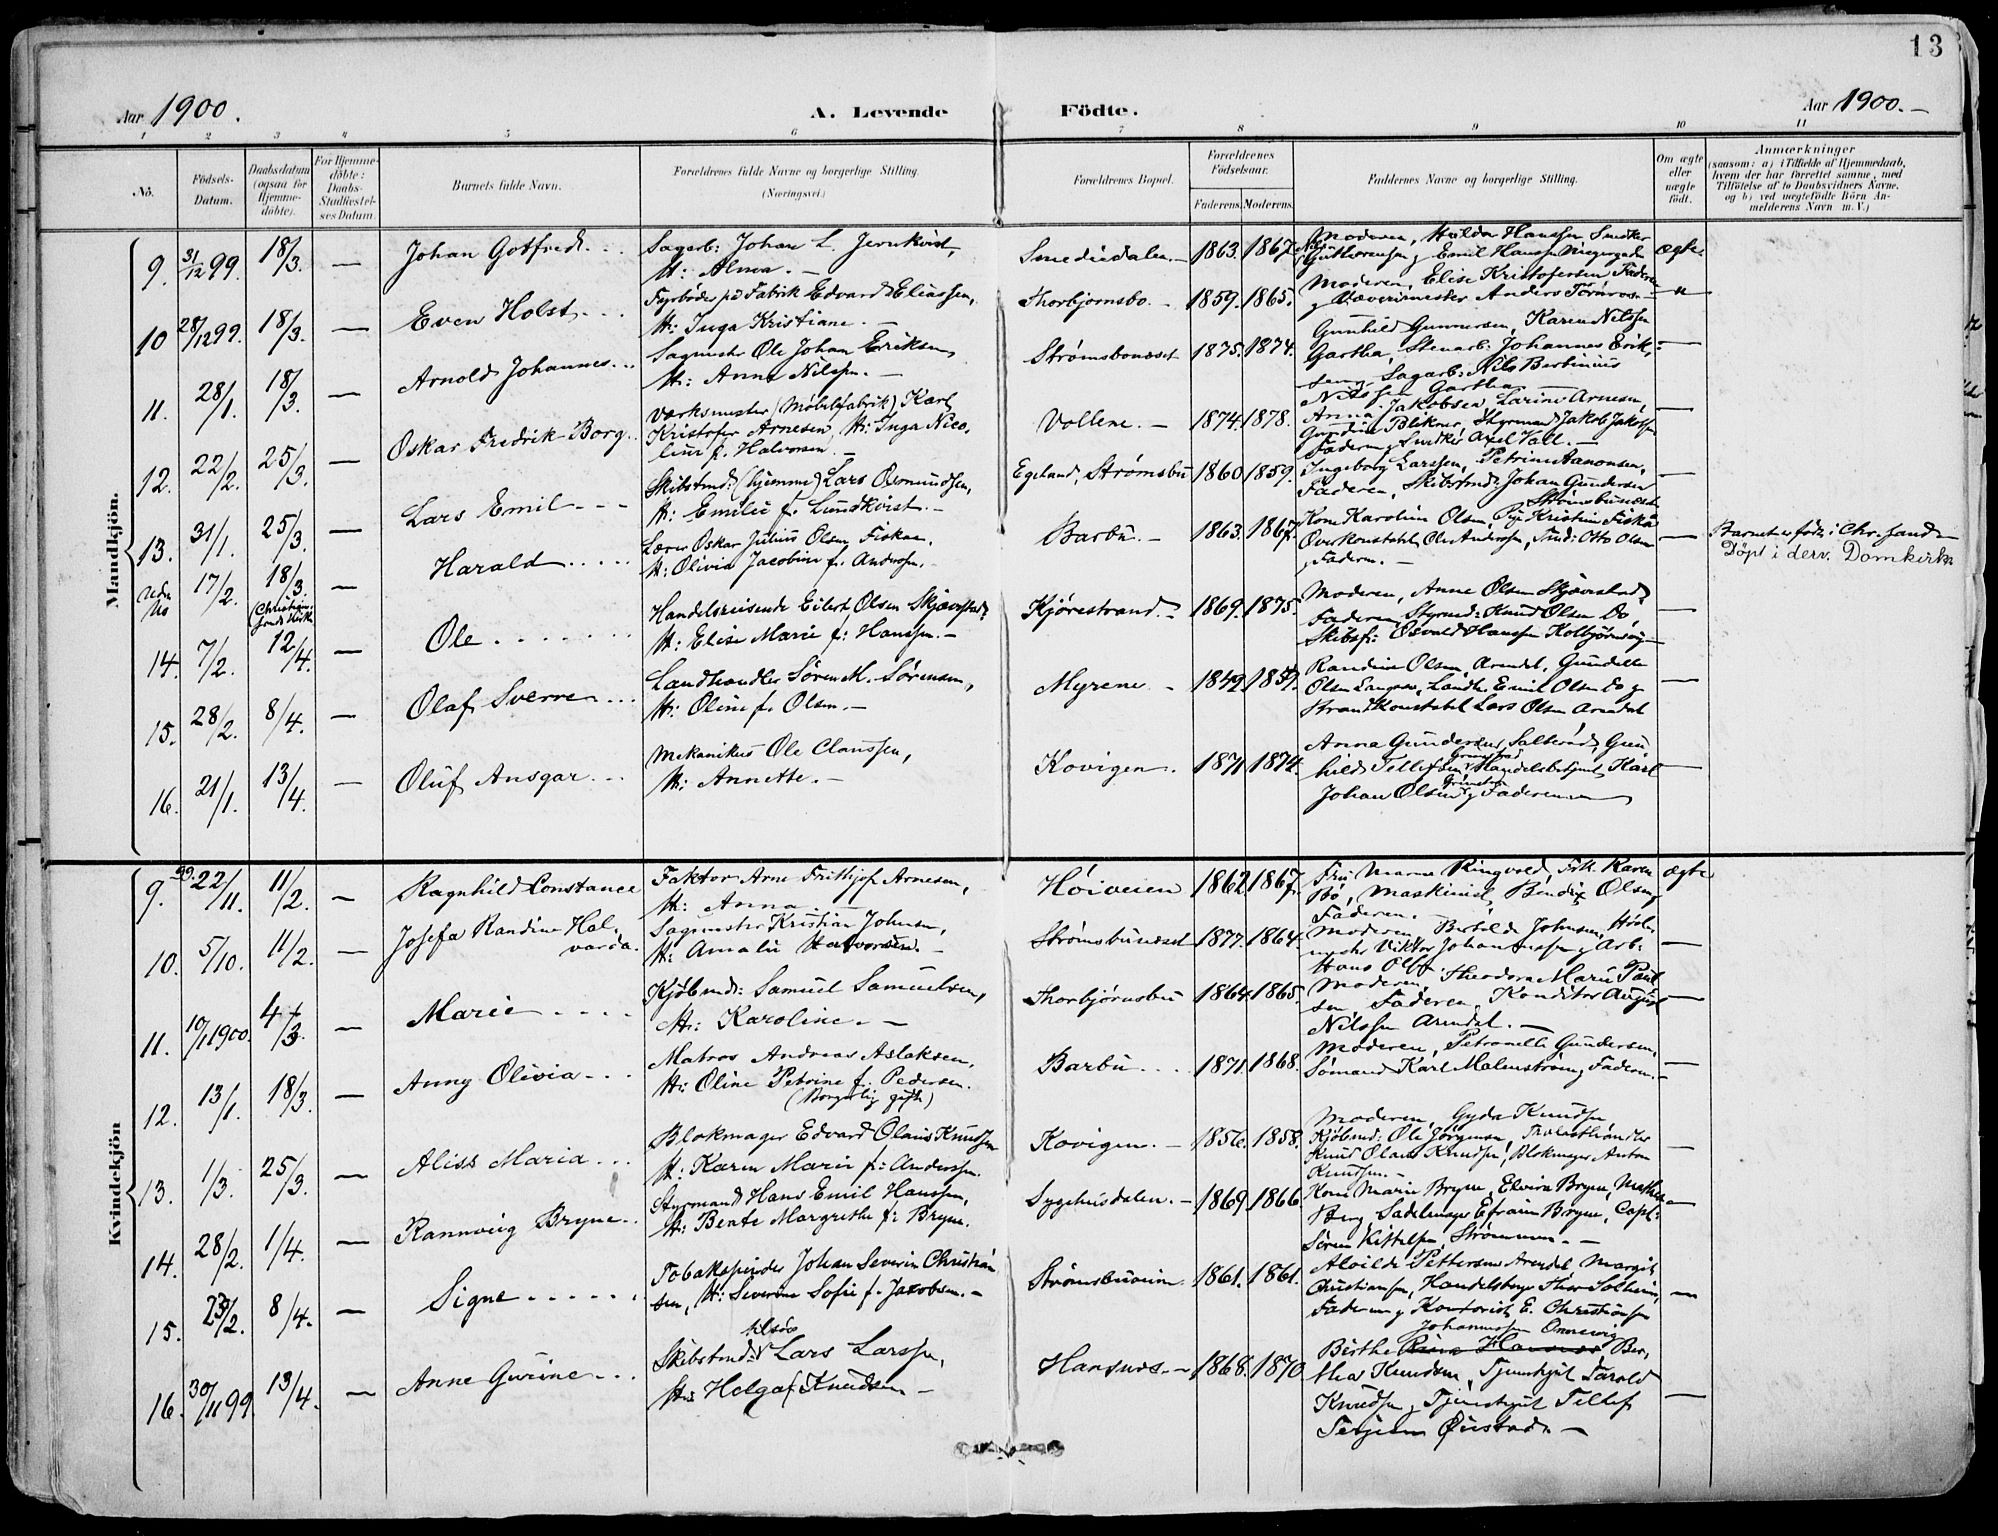 13
Aar 1900.
A. Levende Födte.
Aar 1900.
1 2 3 4 5 6 7 8 9 10 11
No.
Födsels-
Datum.
Daabsdatum
(ogsaa for
Hjemme-
döbte).
For Hjemme-
döbte:
Daabs-
Stadfæstel-
ses Datum.
Barnets fulde Navn.
Forældrenes fulde Navne og borgerlige Stilling.
(Næringsvei.)
Forældrenes Bopæl.
Forældrenes
Födselsaar.
Faderens. Moderens.
Faddernes Navne og borgerlige Stilling.
Om ægte
eller
uægte
födt.
Anmærkninger
(saasom: a) i Tilfælde af Hjemmedaab,
hvem der har forrettet samme, med
Tilföielse af to Daabsvidners Navne,
og b) ved uægtefödte Börn An-
melderens Navn m. V.)
Mandkjön.
9. 31/12 99. 18/3. — Johan Gotfred
Sagarb: Johan L. Jernkvist,
H: Alma. —
Smededalen. — 1863. 1867.
Moderen, Hulda Hanssen
Emil Hanssen
ægte
10 28/12 99. 18/3. — Even Holst
Fyrböder på Fabrik Edvard Eliassen,
H: Inga Kristiane. —
Thorbjørnsbo. — 1859. 1865.
Moderen, Elise Kristofersen, Faderen
Anders
"
11. 28/1. 18/3. — Arnold Johannes
Sagmester Ole Johan Eriksen,
H: Anna Nilssen. —
Strømsbunæset 1875. 1874.
Gunhild Gunnersen, Karen Nilssen
Gartha, Stenarb: Johannes Erik-
sen, Sagarb: Nils Bertinius
Nilssen Gartha
—
12. 22/2. 25/3. — Oskar Fredrik Borg
Værksmester (Møbelfabrik) Karl
Kristofer Arnesen, H: Inga Nico-
line f. Halvorsen. —
Vollene. — 1874. 1878.
Anna Jakobsen, Larine Arnesen,
Styrmand Jakob Jakobsen
Faderen, Axel
—
13. 31/1. 25/3. — Lars Emil
Skibstmd: (hjemme) Lars Osmundsen,
H: Emilie f. Lundkvist. —
Egeland, Strømsbu 1860. 1859.
Ingeborg Larssen, Petrine Aanonsen,
Faderen, Skibstmd: Johan Gundersen
Strømsbunæset
—
17/2. 18/3. — Harald
Lærer Oskar Julius Olsen Fiskaa,
H: Olivia Jacobine f. Andersen. —
Barbu. — 1863. 1867.
Kone Karoline Olsen, Pige Kristine Fiskaa
Overkonstabel Ole Andersen, Otto Olsen
Faderen. —
—
Barnet er født i Chr.sand
Döpt i derv. Domkirke
14. 7/2. 12/4. — Ole
Handelsreisende Eilert Olsen Skjævestad,
H: Elise Marie f: Hanssen. —
Kjørestrand. — 1869. 1875.
Moderen, Anne Olsen Skjævestad,
Faderen, Styrmd: Knud Olsen Do,
Skibsf: Osvald Hanssen
—
15. 28/2. 8/4. — Olaf Sverre
Landhandler Sören M. Sørensen,
H: Oline f. Olsen. —
Myrene. — 1849. 1859.
Randine Olsen, Arendal, Gundelle
Olsen Landh. Emil Olsen Do
Konstabel Lars Olsen Arendal
—
16. 21/1. 13/4. — Oluf Ansgar
Mekanikus Ole Claussen,
H: Annette. —
Kovigen. 1871. 1874.
Anna Gundersen, Salterød, Gun-
hild Tellefsen, Handelsbetjent Karl
Johan Olsen Faderen
—
Kvindekjön
9. 99. 22/11. 11/2. — Ragnhild Constance
Faktor Arne Frithjof Arnesen,
H: Anna. —
Høiveien 1862. 1867.
Fru Marna Ringvold, Frk. Karen
Bø, Maskinist Bendix Olsen
Faderen. —
ægte
10. 5/10. 11/2. — Josefa Randine Hal-
varda.
Sagmester Kristian Johnsen,
H: Amalie Halvorsen. —
Strømsbunæset 1877. 1864.
Moderen, Botilde Johnsen,
Viktor Johannessen, Arb:
Hans
—
11. 10/1 1900. 4/3. — Marie
Kjöbmd: Samuel Samuelsen,
H: Karoline. —
Thorbjørnsbu 1864. 1865.
Moderen, Theodora Marie Paul-
sen, Faderen, Konditor August
Nilssen Arendal. —
—
12. 13/1. 18/3. — Anny Olivia
Matros Andreas Aslaksen,
H: Oline Petrine f. Pedersen.
(Borgerlig gift)
Barbu 1871. 1868.
Moderen, Petronelle Gundersen,
Sømand Karl Malmstrøm, Faderen. —
—
13. 1/3. 25/3. — Aliss Maria
Blokmager Edvard Olaus Knudsen
H: Karen Marie f: Anderssen.
Kovigen. — 1856. 1858.
Moderen, Gyda Knudsen
Kjöbmd: Ole Jörgensen,
Knud Olaus Knudsen, Blokmager Anton
Knudsen. —
—
14. 28/2. 1/4. — Rannveig Bryne
Styrmand Hans Emil Hanssen,
H: Bente Margrethe f: Bryne.
Sygehusdalen. — 1869. 1866.
Kone Marie Bryne, Elvira Bryne, Mathea
Berg, Sadelmager Efraim Bryne, Capt:
Sören Kittelsen, Strømmen. —
—
15. 23/2. 8/4. — Signe
Tobakspinder Johan Severin Christian-
sen, H: Severine Sofie f. Jacobsen. —
1861. 1861.
Alvilde Pettersen Arendal, Margit
Christiansen, Handelsborger Thor Solheim,
Faderen, Kontorist E. Christiansen
—
16. 30/11 99. 13/4. — Anne Gurine
Skibstmd: tilsøs Lars Larssen,
H: Helga f. Knudsen —
Hansnes. — 1868. 1870.
Johannessen
Berthe Ber-
thea Knudsen, Tjenestgut Tarald
Knudsen, Tjenestgut Tellef
Terjesen Øiestad. —
—